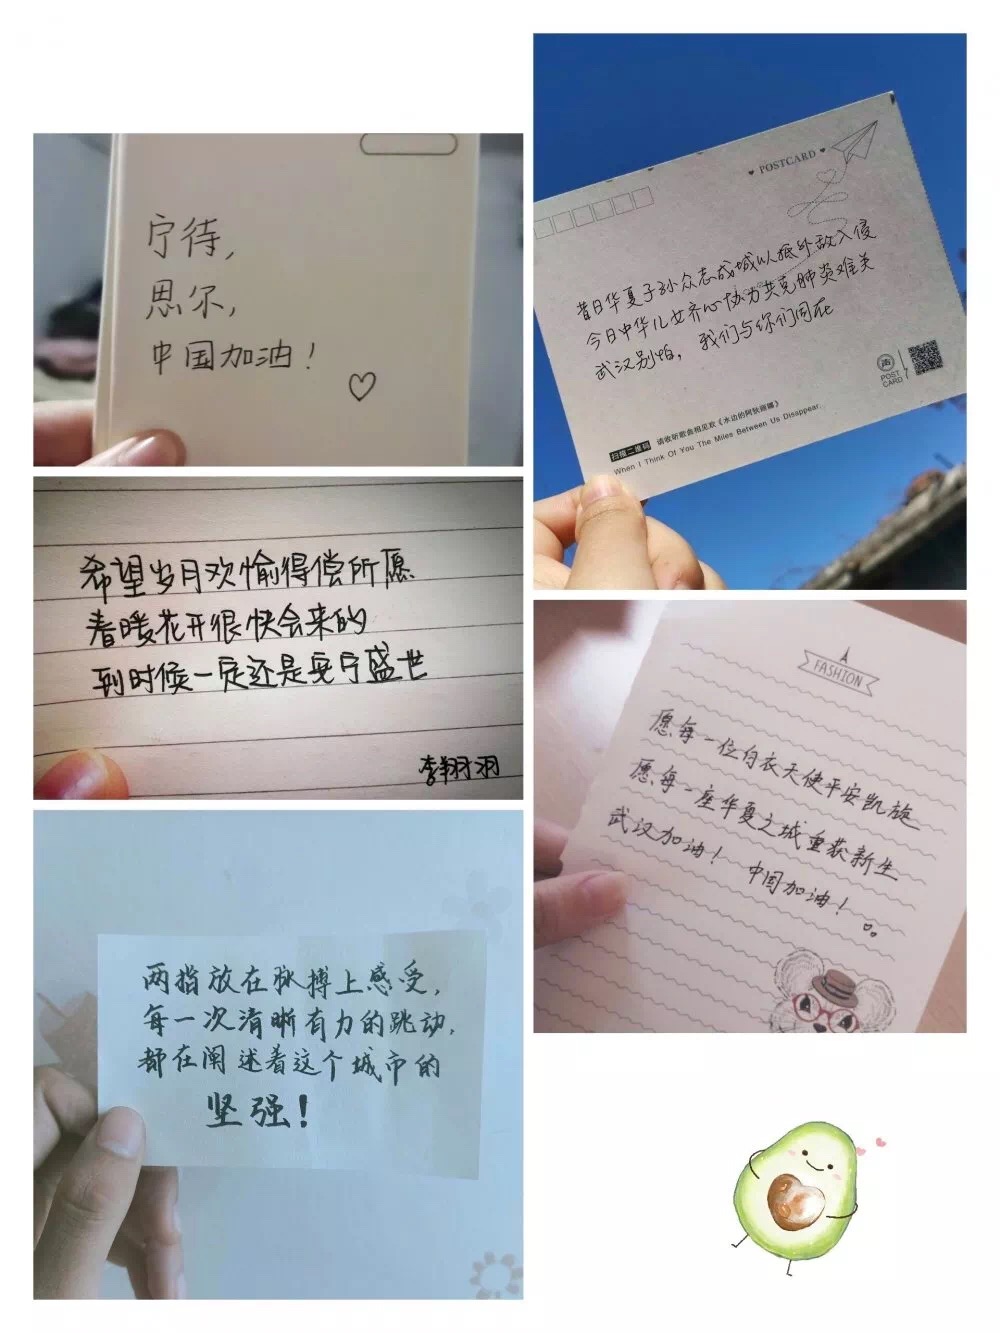 宁待，
思尔，
中国加油！
POSTCARD
昔日华夏子孙众志成城以抵外敌入侵
今日中华儿女齐心协力共克肺炎难关
武汉别怕，我们与你们同在
POST
CARD
扫描二维码 请收听歌曲相见欢《水边的阿狄丽娜》
When I Think Of You The Miles Between Us Disappear
希望岁月欢愉得偿所愿
春暖花开很快会来的
到时候一定还是安宁盛世
李翔羽
FASHION
愿每一位白衣天使平安凯旋
愿每一座华夏之城重获新生
武汉加油！ 中国加油！
两指放在脉搏上感受，
每一次清晰有力的跳动，
都在阐述着这个城市的
坚强！